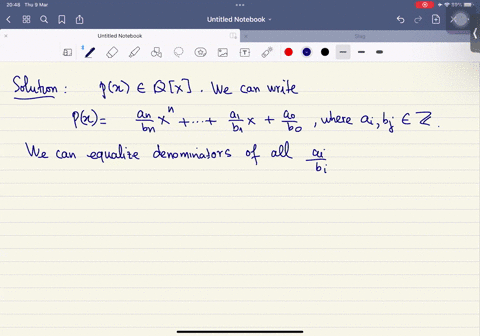 20:46 Thu 9 Mar
89%
Untitled Notebook
Untitled Notebook
Solution : p(x) ∈ Q[x]. We can write
p(x) = aₙ/bₙ xⁿ + ... + a₁/b₁ x + a₀/b₀ , where aᵢ, bⱼ ∈ ℤ.
We can equalize denominators of all aᵢ/bᵢ